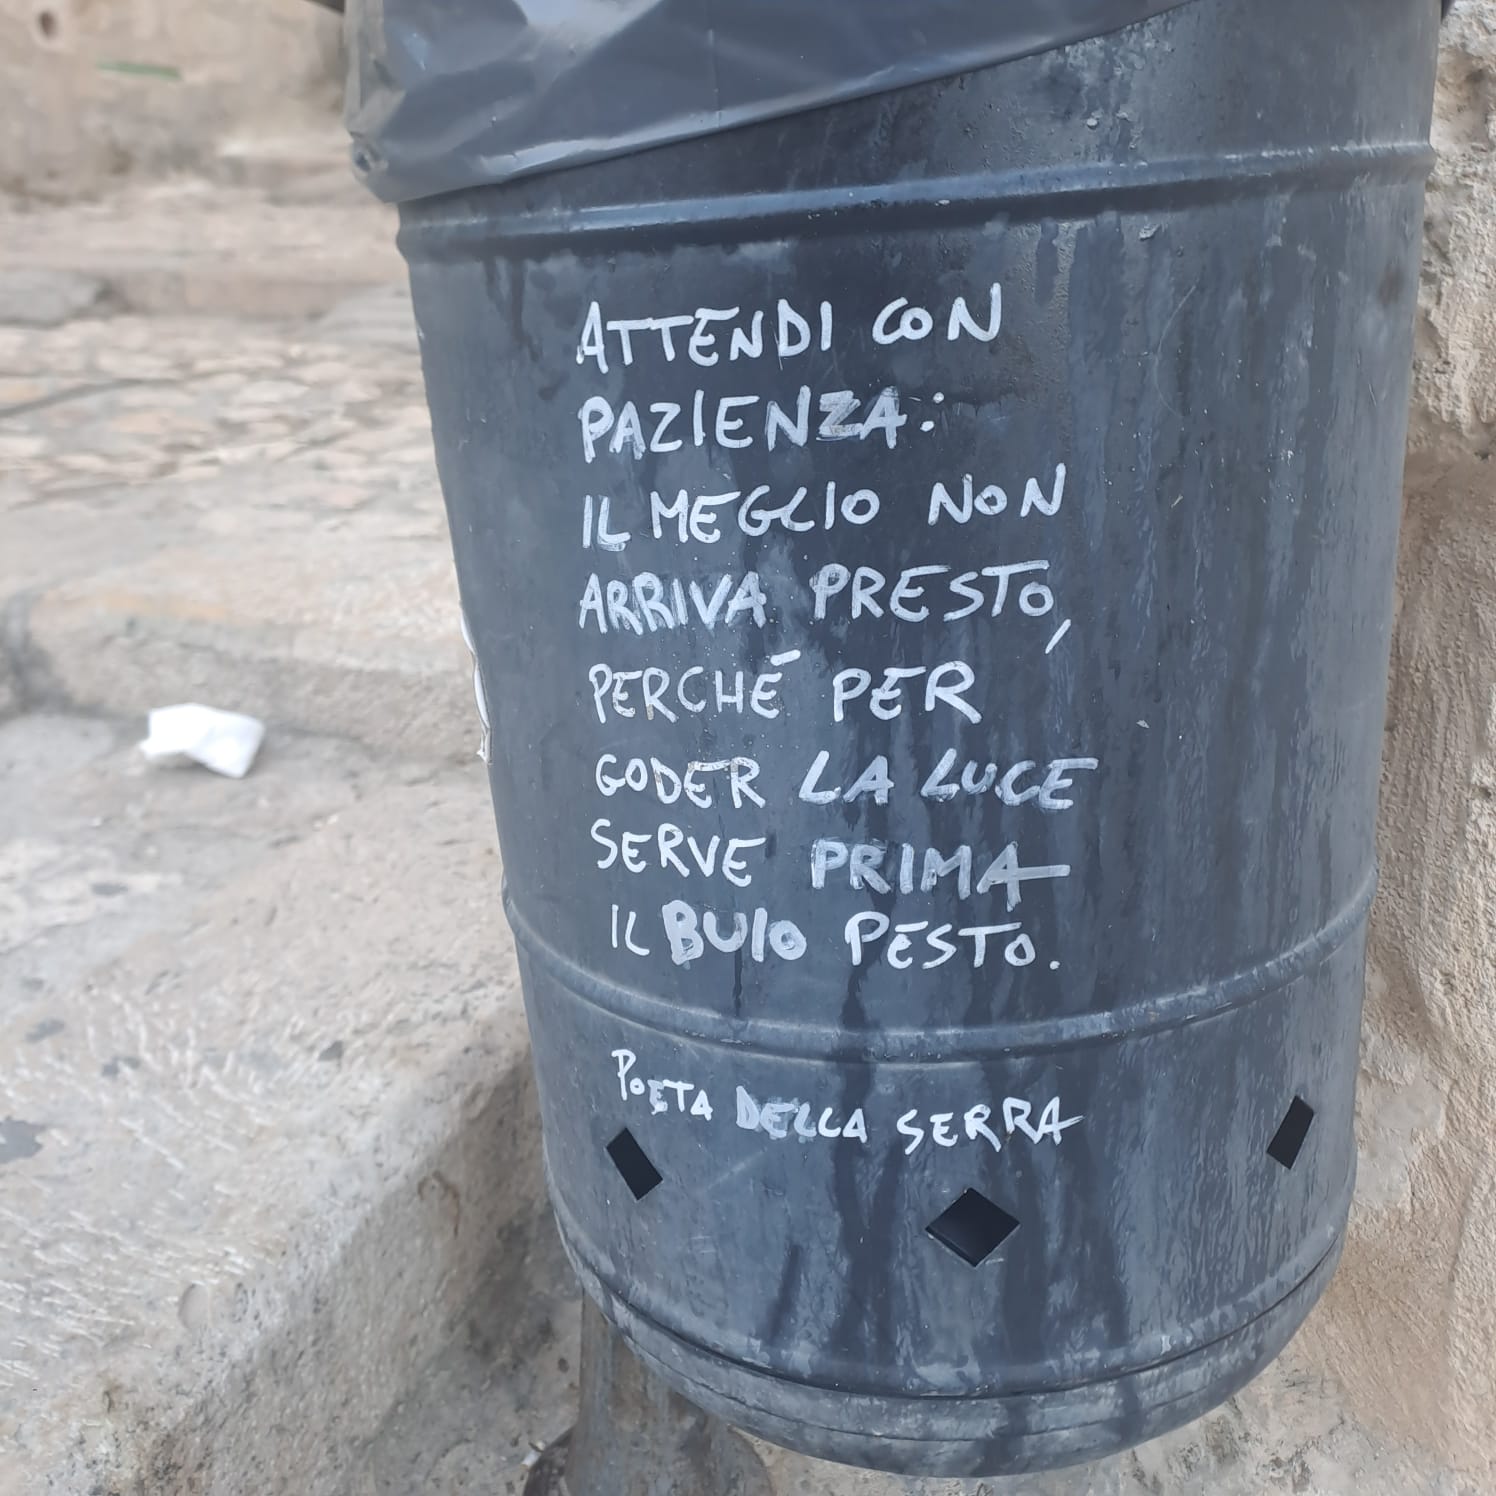 ATTENDI CON
PAZIENZA:
IL MEGLIO NON
ARRIVA PRESTO,
PERCHÉ PER
GODER LA LUCE
SERVE PRIMA
IL BUIO PESTO.
POETA DELLA SERRA